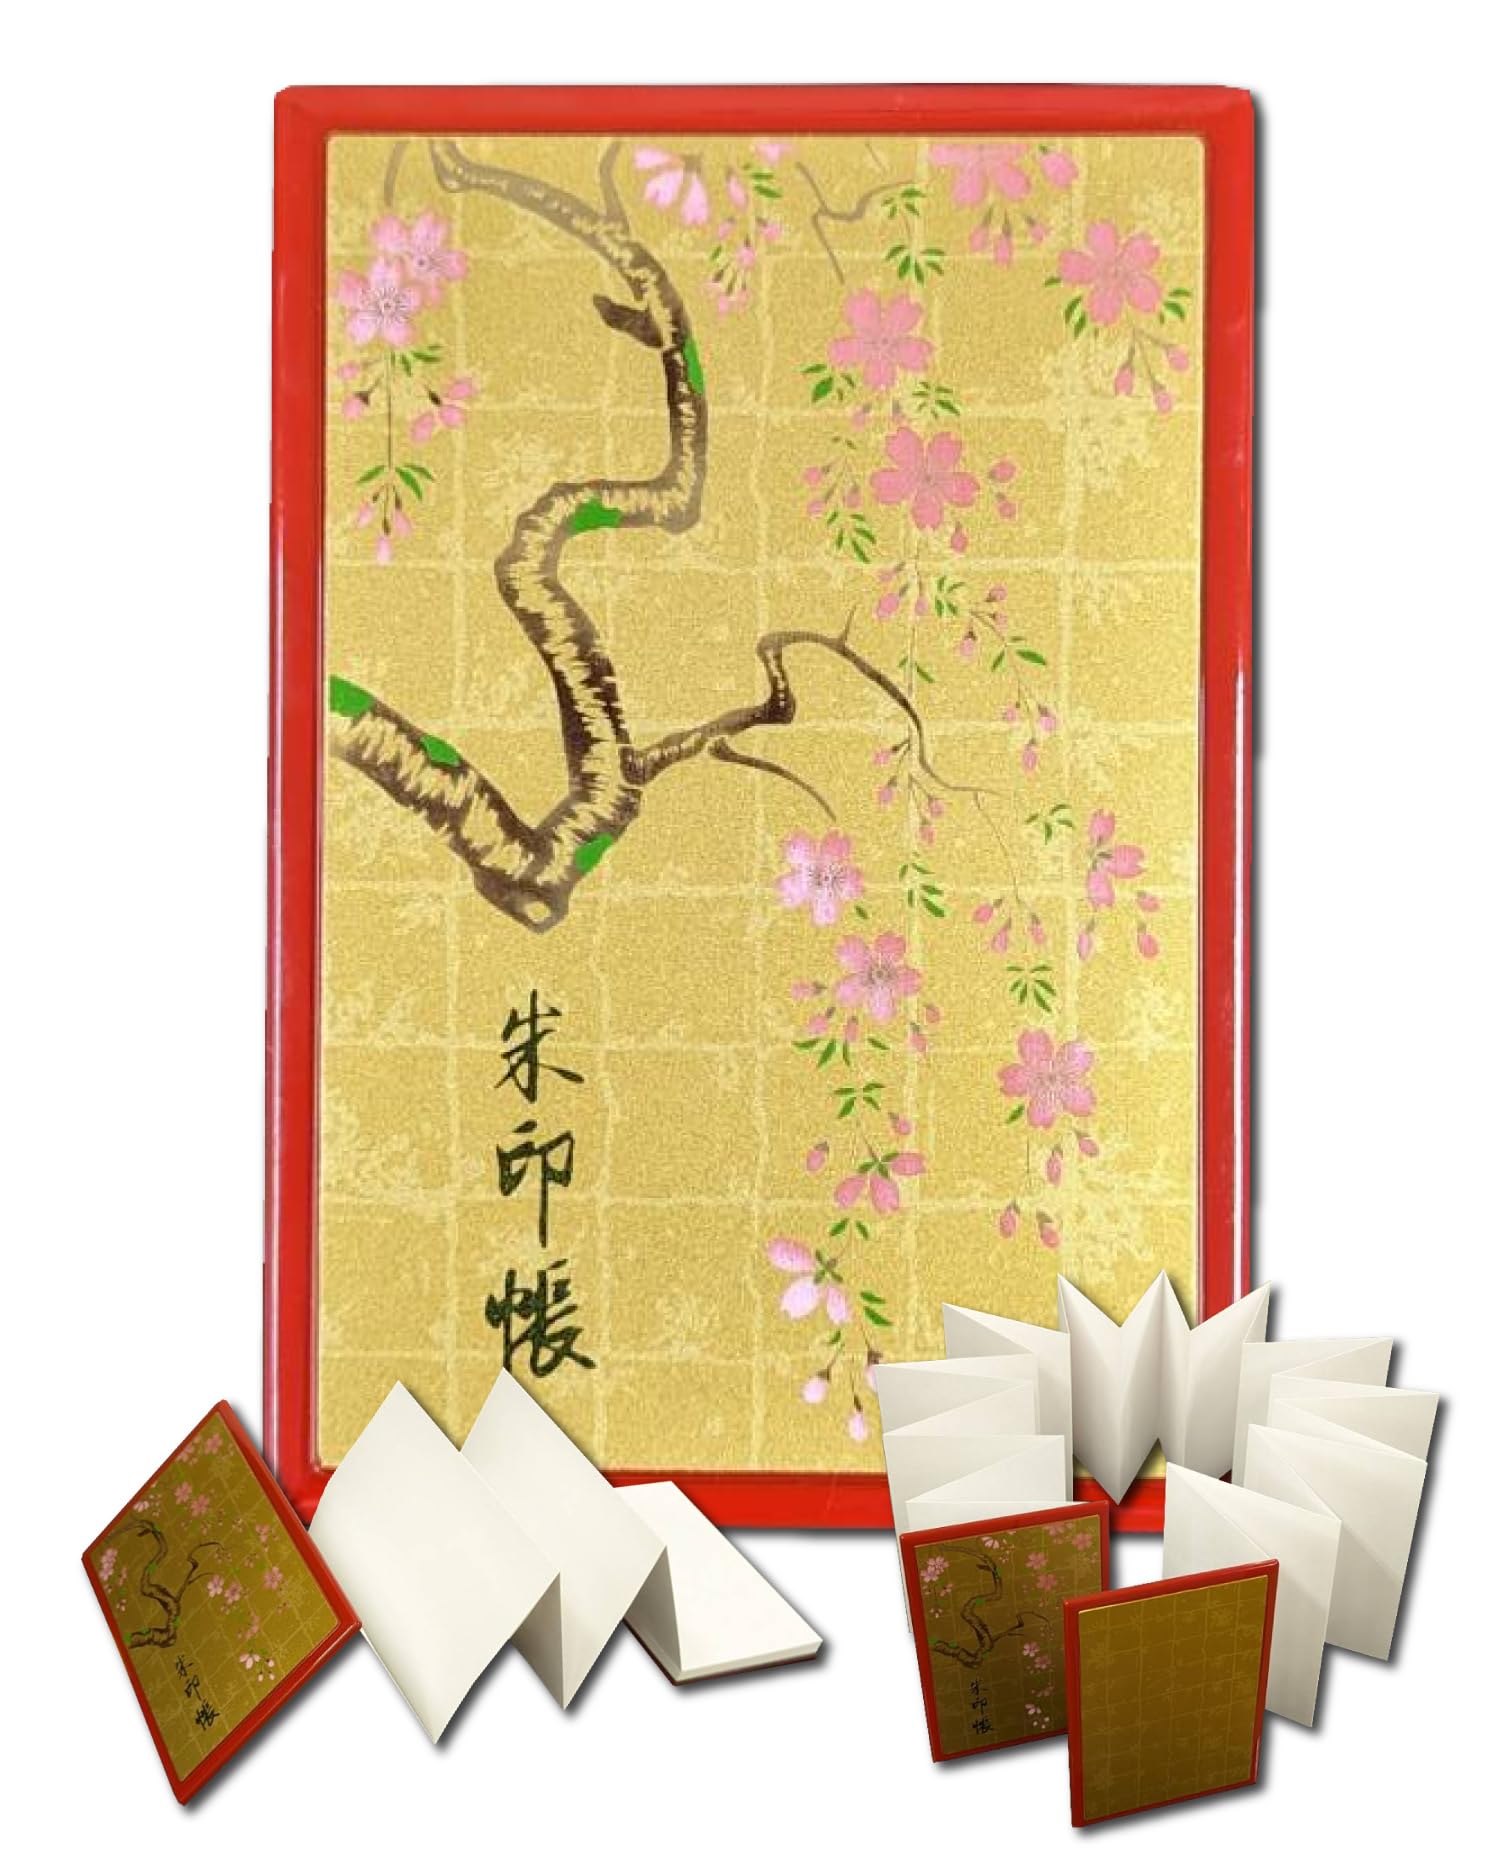 朱印帳
朱印帳
朱印帳